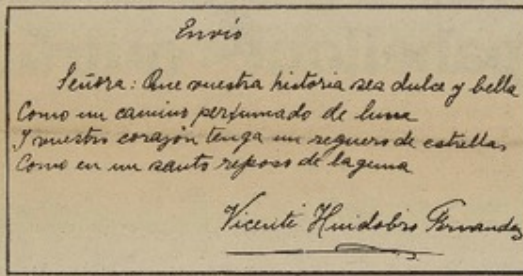 Envío
Señora: Que vuestra historia sea dulce y bella
Como un camino perfumado de luna
I vuestro corazón tenga un reguero de estrellas
Como en un santo reposo de laguna
Vicente Huidobro Fernandez